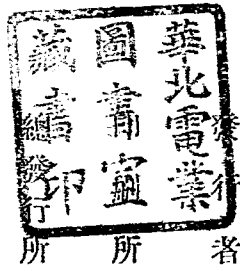 華北電業
圖書室
藏書印
發行者
所
總發行所